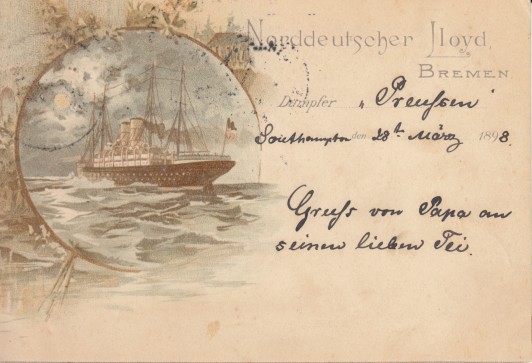 Norddeutscher Lloyd,
BREMEN
Dampfer „Preussen"
Southampton den 28th März 1898.
Gruß von Papa an
seinen lieben Tei.